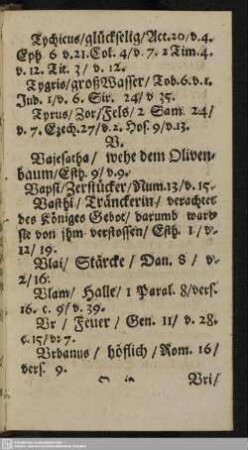 Tychicus/glückselig/Act.20/v.4.
Eph. 6 v.21.Col. 4/v. 7. 2 Tim.4.
v. 12. Tit. 3/ v. 12.
Tygris/großWasser/Tob.6.v.1.
Jud. 1/v. 6. Sir. 24/ v 35.
Tyrus/Zor/Fels/ 2 Sam. 24/
v. 7. Ezech.27/v.2. Hos. 9/v.13.
V.
Vajesatha/ wehe dem Oliven-
baum/Esth. 9/ v.9.
Vapsi/Zerstücker/Num.13/v.15.
Vasthi/ Tränckerin/ verachtet
des Königes Gebot/ darumb ward
sie von jhm verstossen/ Esth. 1/v.
12/ 19.
Vlai/ Stärcke/ Dan. 8 / v.
2/16.
Vlam/ Halle/ 1 Paral. 8/vers.
16. c. 9/ v. 39.
Vr / Feuer/ Gen. 11/ v. 28.
c.15/v: 7.
Vrbanus / höflich / Rom. 16/
vers. 9.
Vri/